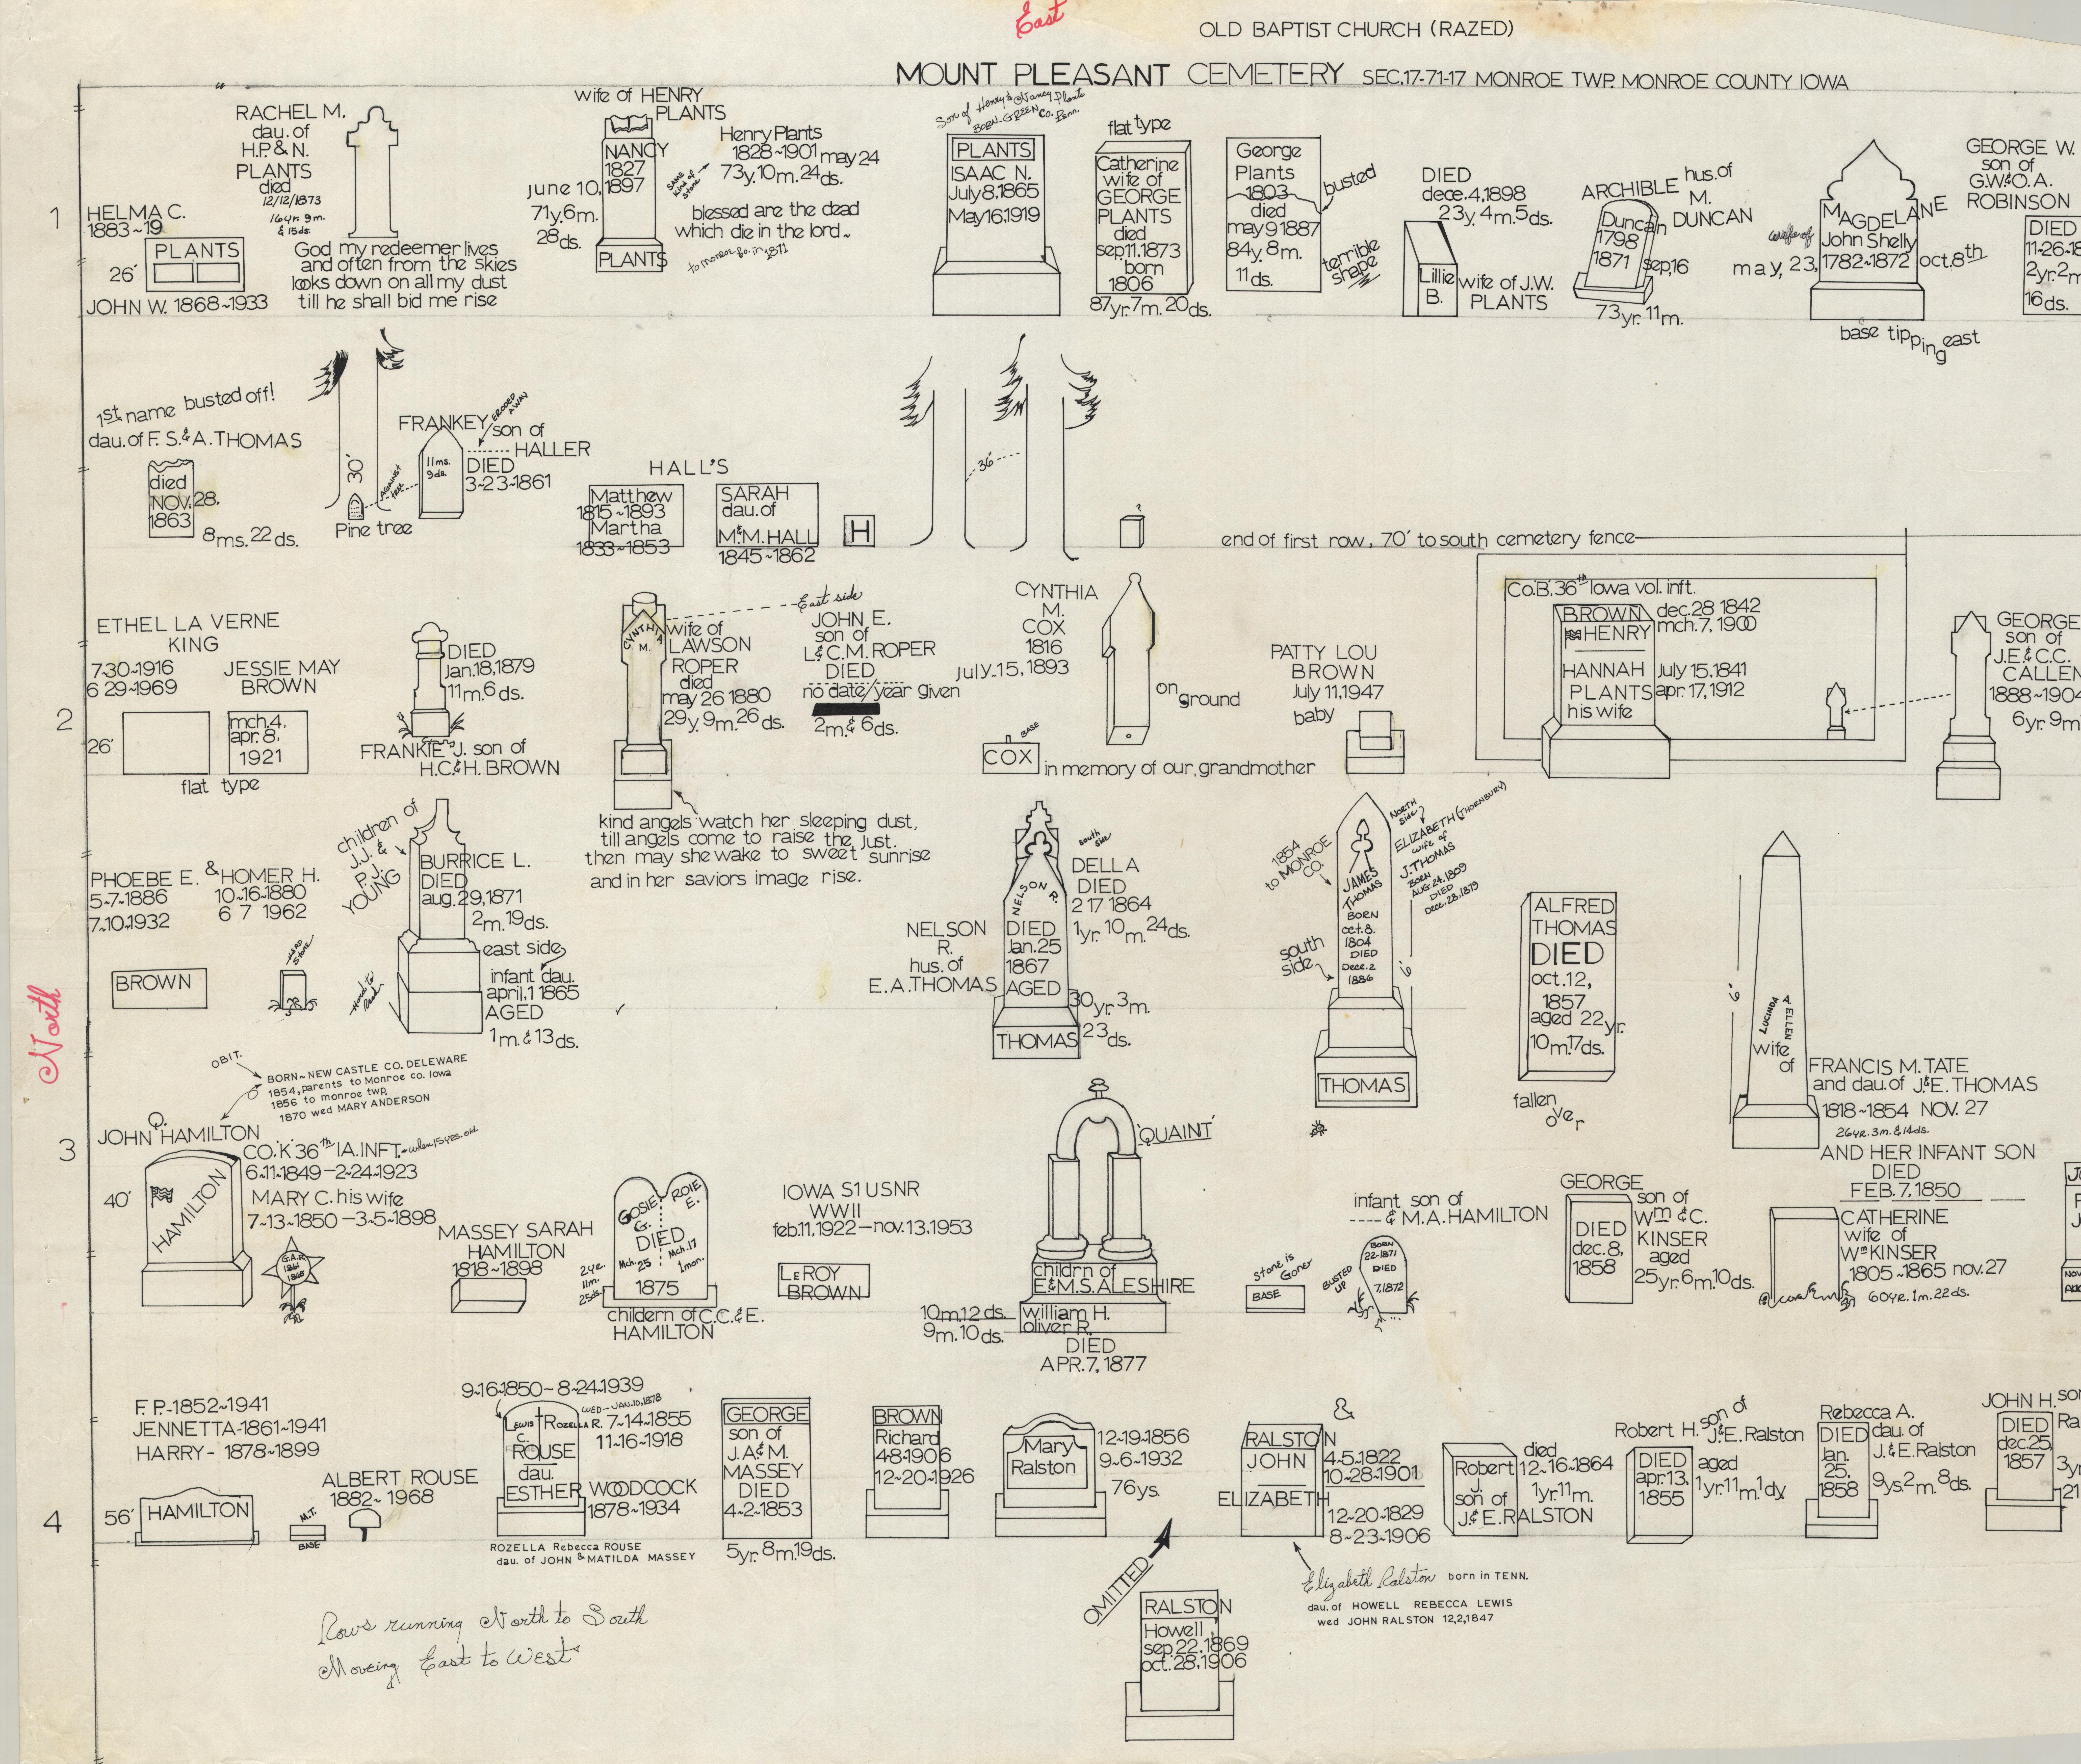 East
OLD BAPTIST CHURCH (RAZED)
MOUNT PLEASANT CEMETERY SEC.17-71-17 MONROE TWP. MONROE COUNTY IOWA
North
1
HELMA C.
1883~19
PLANTS
26'
JOHN W. 1868~1933
RACHEL M.
dau. of
H.P. & N.
PLANTS
died
12/12/1873
16yr. 9m.
& 15ds.
God my redeemer lives
and often from the skies
looks down on all my dust
till he shall bid me rise
wife of HENRY
PLANTS
NANCY
1827
June 10, 1897
71y. 6m.
28ds.
PLANTS
same kind of stone
Henry Plants
1828~1901 may 24
73y. 10m. 24ds.
blessed are the dead
which die in the lord~
to monroe co. in 1871
Son of Henry & Nancy Plants
BORN-GREEN Co. Penn.
PLANTS
ISAAC N.
July 8, 1865
May 16 1919
flat type
Catherine
wife of
GEORGE
PLANTS
died
sep. 11. 1873
born
1806
87yr. 7m. 20ds.
George
Plants
1803
died
may 9 1887
84y. 8m.
11ds.
busted
terrible
shape
DIED
dece. 4, 1898
23y. 4m. 5ds.
Lillie
B.
wife of J.W.
PLANTS
ARCHIBLE hus. of
M.
Duncan DUNCAN
1798
1871 sep, 16
73yr. 11m.
MAGDELANE
wife of John Shelly
may, 23, 1782~1872 oct, 8th
base tipping east
GEORGE W.
son of
G.W. & O.A.
ROBINSON
DIED
11-26-18
2yr. 2m
16ds.
1st name busted off!
dau. of F. S. & A. THOMAS
died
NOV. 28,
1863
8ms. 22ds.
30'
AGAINST tree
Pine tree
FRANKEY ERODED AWAY
son of
HALLER
11ms.
9ds.
DIED
3-23-1861
HALL'S
Matthew
1815~1893
Martha
1833~1853
SARAH
dau. of
M. & M. HALL
1845~1862
H
36"
?
end of first row, 70' to south cemetery fence
2
ETHEL LA VERNE
KING
7-30-1916
6 29-1969
JESSIE MAY
BROWN
mch. 4,
apr. 8,
1921
26'
flat type
DIED
Jan. 18, 1879
11m. 6ds.
FRANKIE J. son of
H.C. & H. BROWN
East side
CYNTHIA
M.
wife of
LAWSON
ROPER
died
may 26 1880
29y. 9m. 26ds.
JOHN E.
son of
L. & C. M. ROPER
DIED
no date/year given
2m. & 6ds.
kind angels watch her sleeping dust,
till angels come to raise the just.
then may she wake to sweet sunrise
and in her saviors image rise.
CYNTHIA
M.
COX
1816
July. 15, 1893
on ground
BASE
COX
in memory of our, grandmother
PATTY LOU
BROWN
July 11, 1947
baby
Co. B. 36th Iowa vol. inft.
BROWN
HENRY
dec. 28 1842
mch. 7, 1900
HANNAH
PLANTS
his wife
July 15. 1841
apr. 17, 1912
GEORGE
son of
J.E. & C.C.
CALLEN
1888~1904
6yr. 9m
PHOEBE E. & HOMER H.
5-7-1886 10-16-1880
7-10-1932 6 7 1962
BROWN
HEAD STONE
children of
J.J. &
P.J.
YOUNG
BURRICE L.
DIED
aug. 29, 1871
2m. 19ds.
Hard to Read
east side
infant dau.
april, 1 1865
AGED
1m. & 13ds.
NELSON
R.
hus. of
E.A. THOMAS
NELSON R.
DIED
Jan. 25
1867
AGED
30yr. 3m.
23ds.
THOMAS
south side
DELLA
DIED
2 17 1864
1yr. 10m. 24ds.
1854
to MONROE
CO.
south
side
JAMES
THOMAS
BORN
oct. 8.
1804
DIED
Dece. 2
1886
NORTH
side?
ELIZABETH (THORNBURY)
wife of
J. THOMAS
BORN
AUG 24, 1809
DIED
Dece. 28, 1879
6'
THOMAS
ALFRED
THOMAS
DIED
oct. 12,
1857
aged 22yr.
10m. 17ds.
fallen
over
6'
LUCINDA A. ELLEN
wife
of FRANCIS M. TATE
and dau. of J. & E. THOMAS
1818~1854 NOV. 27
26yr. 3m. & 14ds.
AND HER INFANT SON
DIED
FEB. 7, 1850
3
OBIT.
BORN~NEW CASTLE CO. DELEWARE
1854, parents to Monroe co. Iowa
1856 to monroe twp.
1870 wed MARY ANDERSON
JOHN Q. HAMILTON
CO. K. 36th IA. INFT. - when 15 yrs. old
6-11-1849 - 2-24-1923
MARY C. his wife
7-13-1850 - 3-5-1898
HAMILTON
40'
G.A.R.
1861
1865
MASSEY SARAH
HAMILTON
1818~1898
GOSIE G.
ROIE E.
DIED
Mch. 25
Mch. 17
1mon.
2yr.
11m.
25ds.
1875
childern of C.C. & E.
HAMILTON
IOWA S1 USNR
WWII
feb. 11, 1922 — nov. 13. 1953
LEROY
BROWN
'QUAINT'
childrn of
E. & M. S. ALESHIRE
10m. 12 ds. william H.
9m. 10 ds. oliver R.
DIED
APR. 7, 1877
Stone is
Gone
BASE
infant son of
---- & M.A. HAMILTON
BUSTED UP
BORN
22-1871
DIED
7, 1872
GEORGE
son of
Wm & C.
KINSER
aged
25yr. 6m. 10ds.
DIED
dec. 8,
1858
CATHERINE
wife of
Wm KINSER
1805~1865 nov. 27
60yr. 1m. 22ds.
4
F. P.-1852~1941
JENNETTA-1861~1941
HARRY- 1878~1899
56'
HAMILTON
M.T.
BASE
ALBERT ROUSE
1882~1968
9-16-1850 - 8-24-1939
WED-JAN. 10, 1878
LEWIS C.
ROZELLA R. 7-14-1855
11-16-1918
ROUSE
dau.
ESTHER WOODCOCK
1878~1934
ROZELLA Rebecca ROUSE
dau. of JOHN & MATILDA MASSEY
GEORGE
son of
J.A. & M.
MASSEY
DIED
4-2-1853
5yr. 8m. 19ds.
BROWN
Richard
4-8-1906
12-20-1926
Mary
Ralston
12-19-1856
9-6-1932
76ys.
&
RALSTON
JOHN
4-5-1822
10-28-1901
ELIZABETH
12-20-1829
8-23-1906
Elizabeth Ralston born in TENN.
dau. of HOWELL REBECCA LEWIS
wed JOHN RALSTON 12,2,1847
OMITTED
RALSTON
Howell
sep. 22. 1869
oct. 28, 1906
Robert
J.
son of
J. & E. RALSTON
died
12-16-1864
1yr. 11m.
Robert H. son of
J. & E. Ralston
DIED
apr. 13,
1855
aged
1yr. 11m. 1dy.
Rebecca A.
dau. of
J. & E. Ralston
DIED
Jan.
25,
1858
9ys. 2m. 8ds.
JOHN H. son
DIED
dec. 25,
1857
Ra
3yr
21
Rows running North to South
Moveing East to West